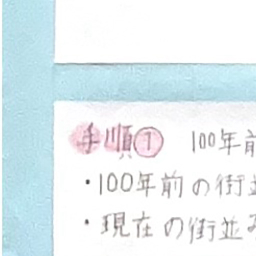 手順① 100年前
・100年前の街並
・現在の街並み